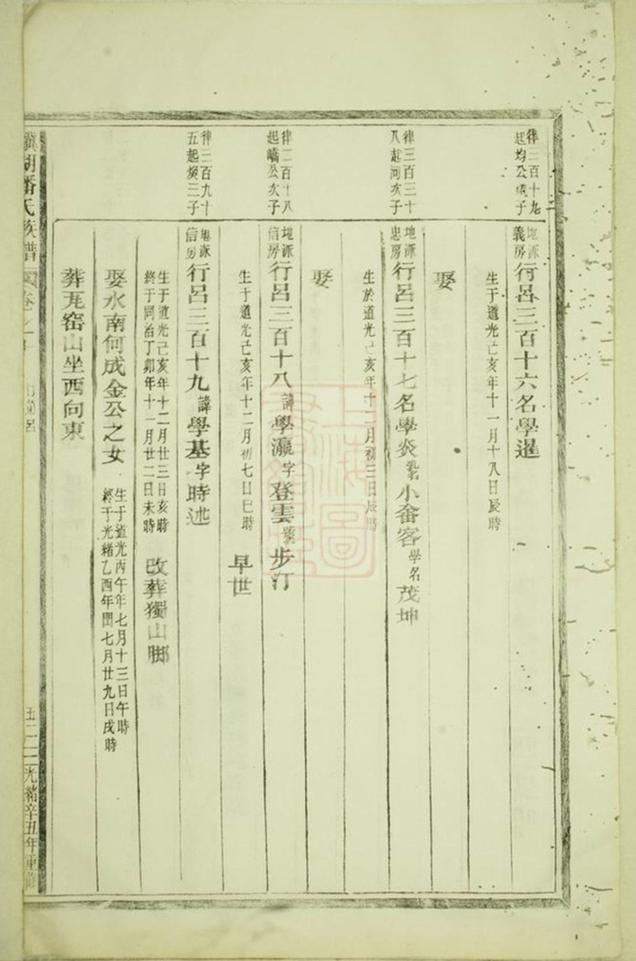 律二百十九
起均公 子
地派
義房
行呂三百十六名學暹
生于道光己亥年十一月十八日辰時
娶
律三百三十
八起河次子
地派
忠房
行呂三百十七名學炎號小畬客學名茂坤
生於道光己亥年十二月初三日辰時
娶
律二百十八
起嶠公次子
地派
信房
行呂三百十八諱學瀛字登雲號步汀
生于道光己亥年十二月初七日巳時 早世
律三百九十
五起 三子
地派
信房
行呂三百十九諱學基字時述
生于道光己亥年十二月廿三日亥時
終于同治丁卯年十一月廿二日未時
改葬獨山脚
娶水南何成金公之女
生于道光丙午年七月十三日午時
終于光緒乙酉年閏七月廿九日戌時
葬瓦窑山坐西向東
湖潘氏族譜 卷之 呂 光緒辛丑年重